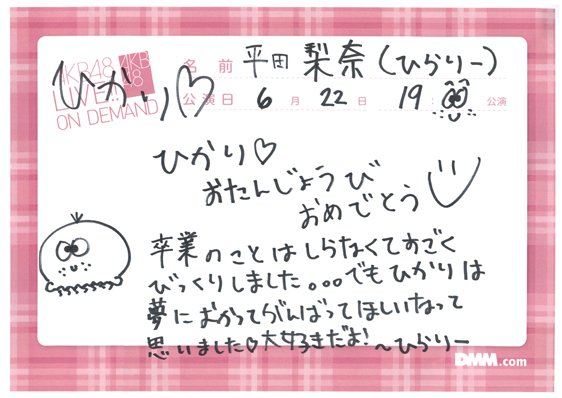 AKB48 AKB48
LIVE!!
ON DEMAND
ひかり♡
名前 平田 梨奈(ひらりー)
公演日 6月22日 19:00 公演
ひかり♡
おたんじょうび
おめでとう
卒業のことはしらなくてすごく
びっくりしました。。。でもひかりは
夢にむかってがんばってほしいなって
思いました♡大好きだよ!
〜ひらりー
DMM.com